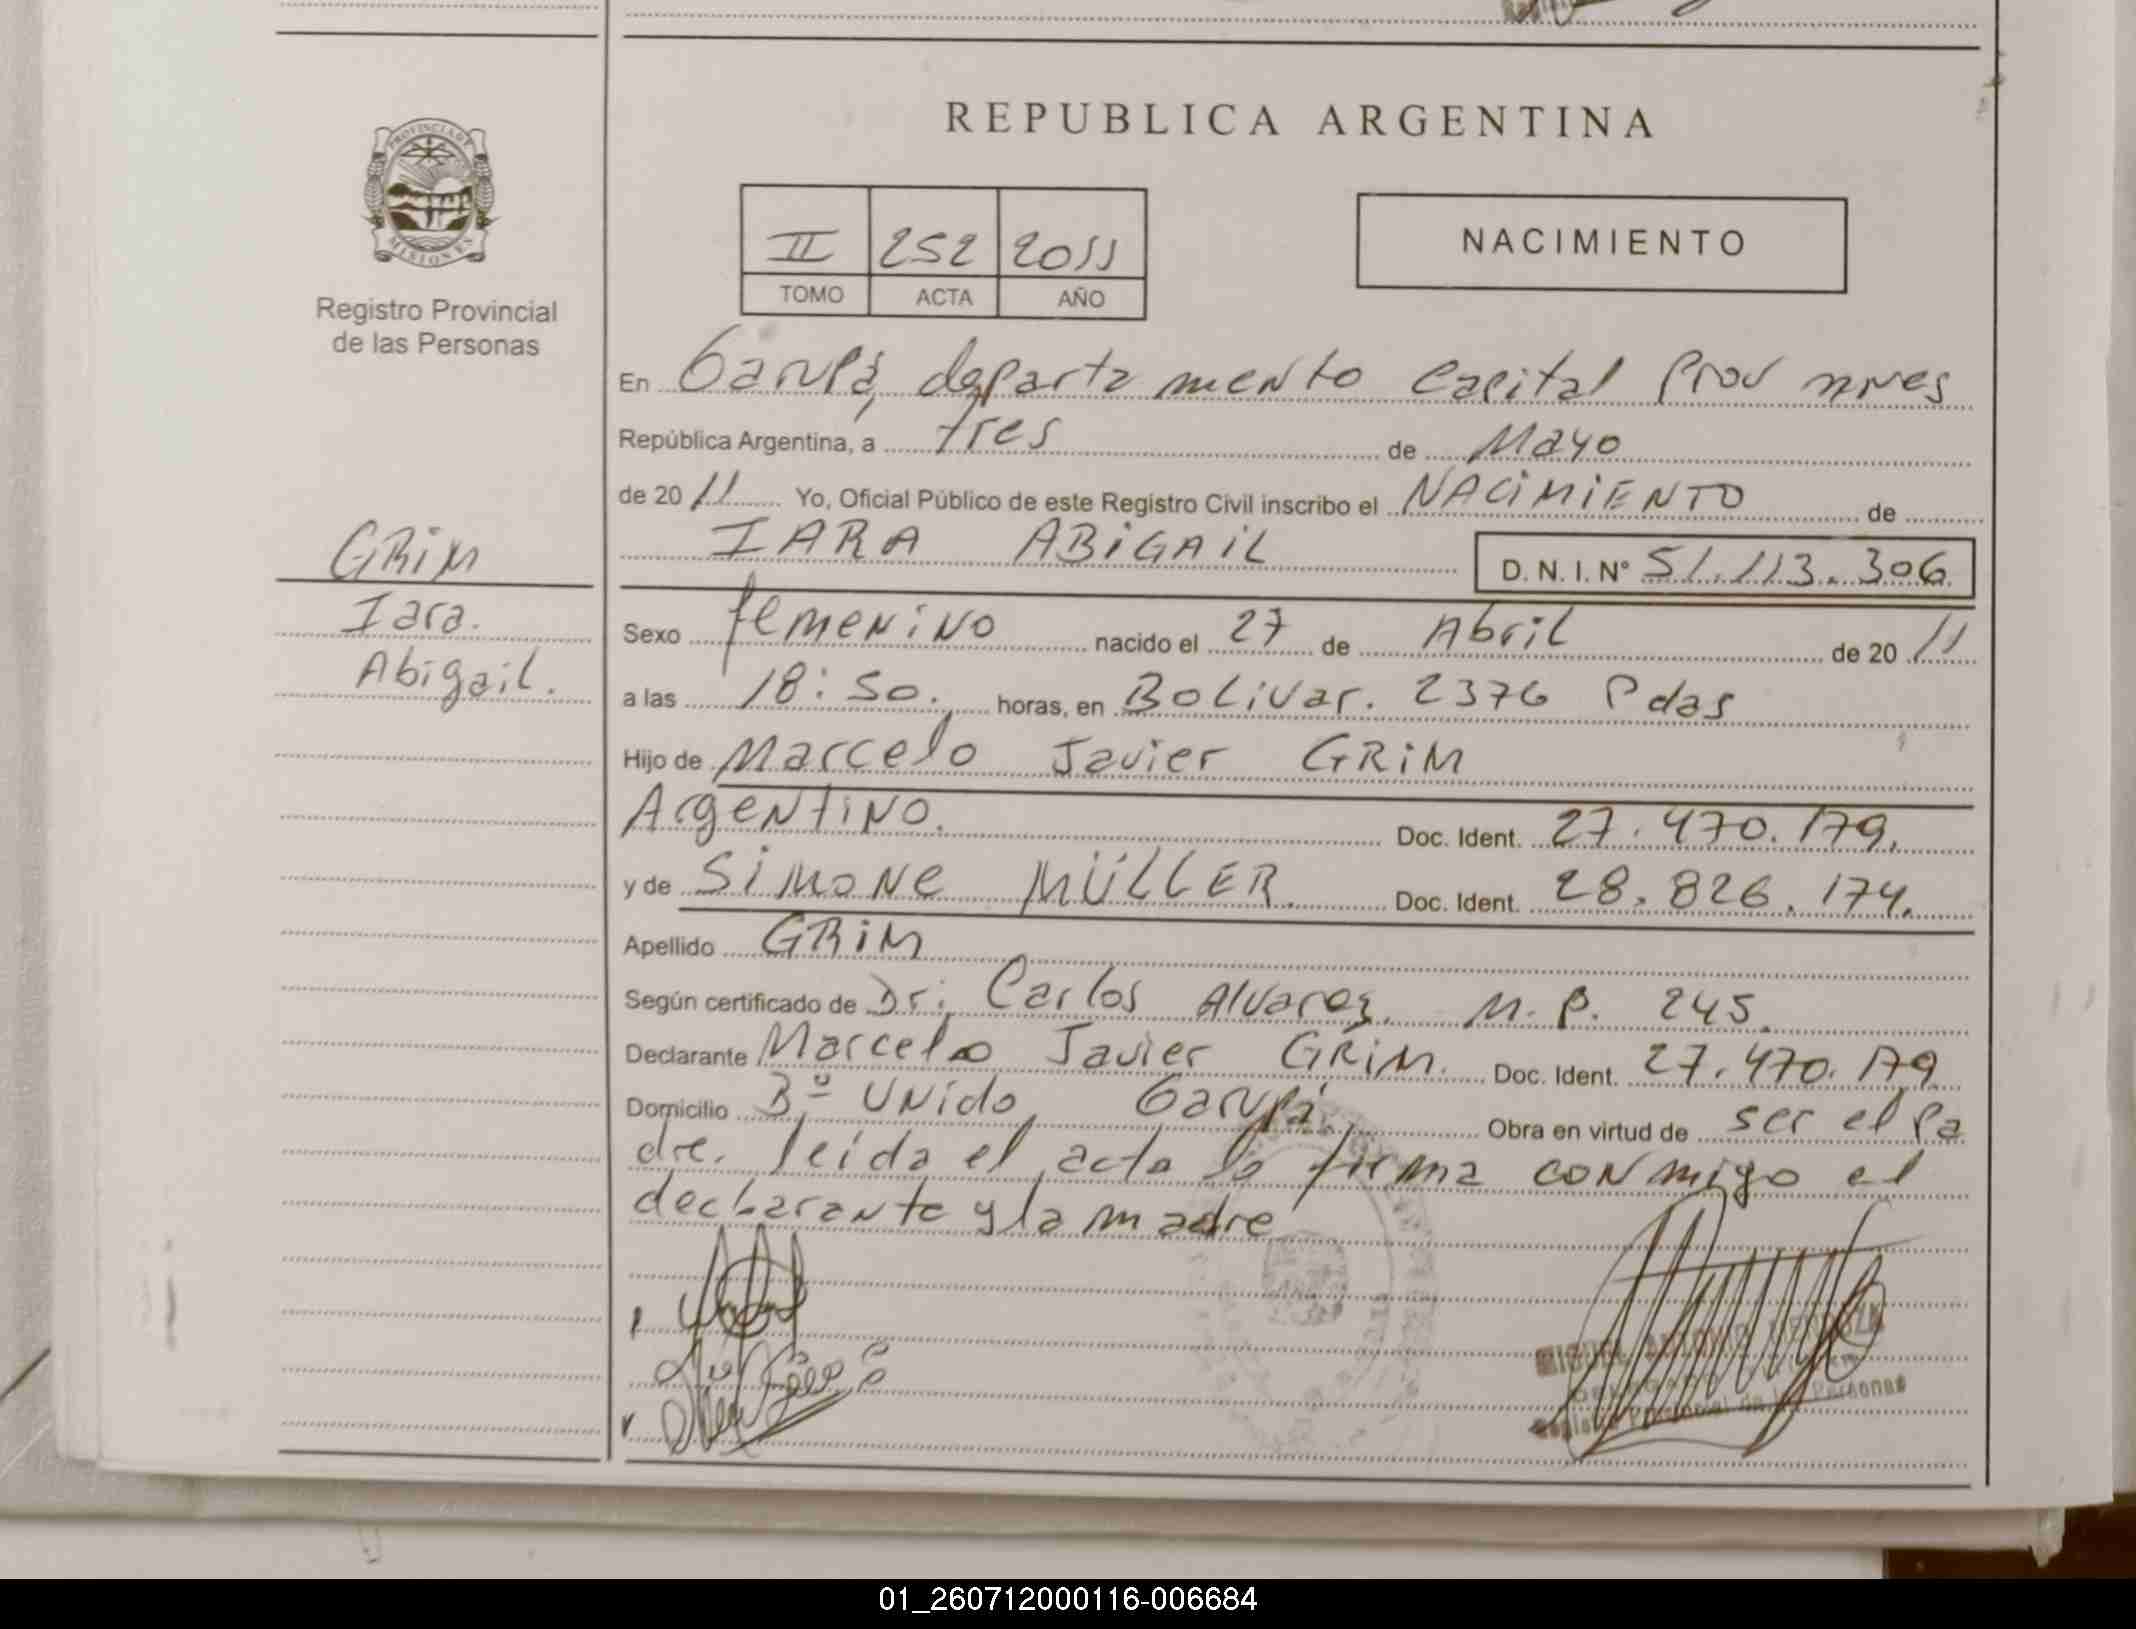 REPUBLICA ARGENTINA
PROVINCIA DE
MISIONES
Registro Provincial
de las Personas
II 252 2011
TOMO ACTA AÑO
NACIMIENTO
En Garupá, departamento Capital Prov mnes
República Argentina, a tres de Mayo
de 2011 Yo, Oficial Público de este Registro Civil inscribo el NACIMIENTO de
IARA ABIGAIL D. N. I. N° 51.113.306
GRIM
Iara.
Abigail.
Sexo femenino nacido el 27 de Abril de 2011
a las 18:50. horas, en Bolivar. 2376 Pdas
Hijo de Marcelo Javier GRIM
Argentino. Doc. Ident. 27.470.179.
y de Simone MÜLLER. Doc. Ident. 28.826.174.
Apellido GRIM
Según certificado de Dr. Carlos Alvarez. M.P. 245.
Declarante Marcelo Javier GRIM. Doc. Ident. 27.470.179
Domicilio Bº Unido, Garupá. Obra en virtud de ser el pa
dre. leida el acta la firma conmigo el
declarante y la madre
MIGUEL ANTONIO MENDOZA
DELEGADO
Registro Provincial de las Personas
01_260712000116-006684